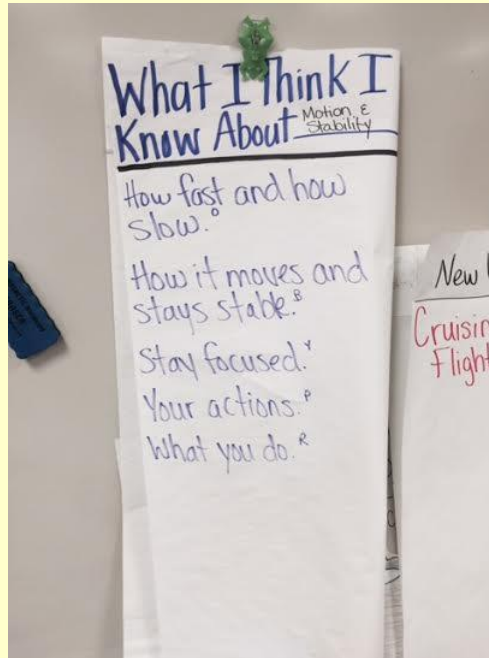 What I Think I
Know About Motion &
Stability
How fast and how
slow. O
How it moves and
stays stable. B
Stay focused. Y
Your actions. P
What you do. R
New
Cruisin
Flight